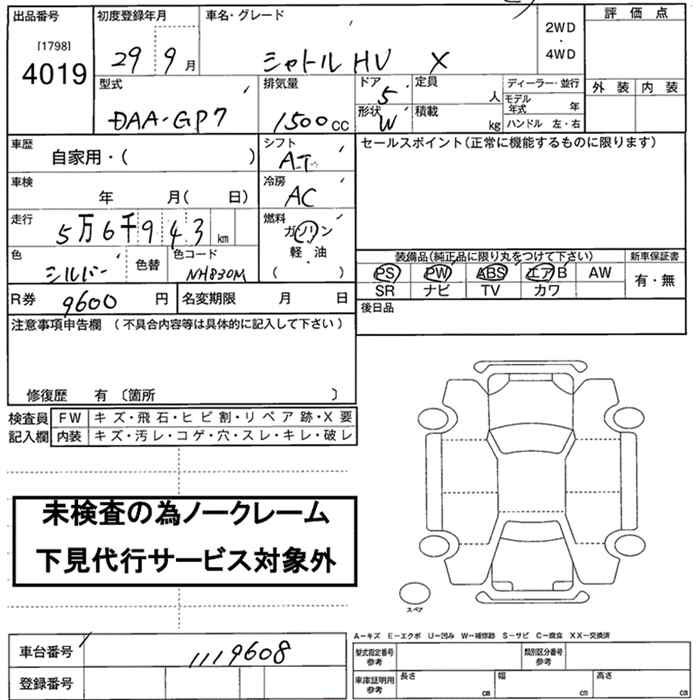 出品番号 初度登録年月 車名・グレード 評価点
[1798] 4019 29 9月 シャトルHV X 2WD・4WD
外装 内装
型式 排気量 ドア 定員 ディーラー・並行
DAA-GP7 1500cc 5 人 モデル年式 年
形状 W 積載 kg ハンドル 左・右
車歴 自家用・( ) シフト AT セールスポイント(正常に機能するものに限ります)
車検 年 月( 日) 冷房 AC
走行 5万6千943km 燃料 ガソリン・軽油( )
色 シルバー 色替 色コード NH830M
装備品(純正品に限り丸をつけて下さい) 新車保証書
PS PW ABS エアB AW 有・無
SR ナビ TV カワ
R券 9600円 名変期限 月 日
後日品
注意事項申告欄 (不具合内容等は具体的に記入して下さい)
修復歴 有 〔箇所 〕
検査員記入欄 FW キズ・飛石・ヒビ割・リペア跡・X要
内装 キズ・汚レ・コゲ・穴・スレ・キレ・破レ
未検査の為ノークレーム
下見代行サービス対象外
スペア
A-キズ E-エクボ U-凹み W-補修跡 S-サビ C-腐食 XX-交換済
車台番号 1119608 型式指定番号 参考 類別区分番号 参考
登録番号 車庫証明用 参考 長さ cm 幅 cm 高さ cm